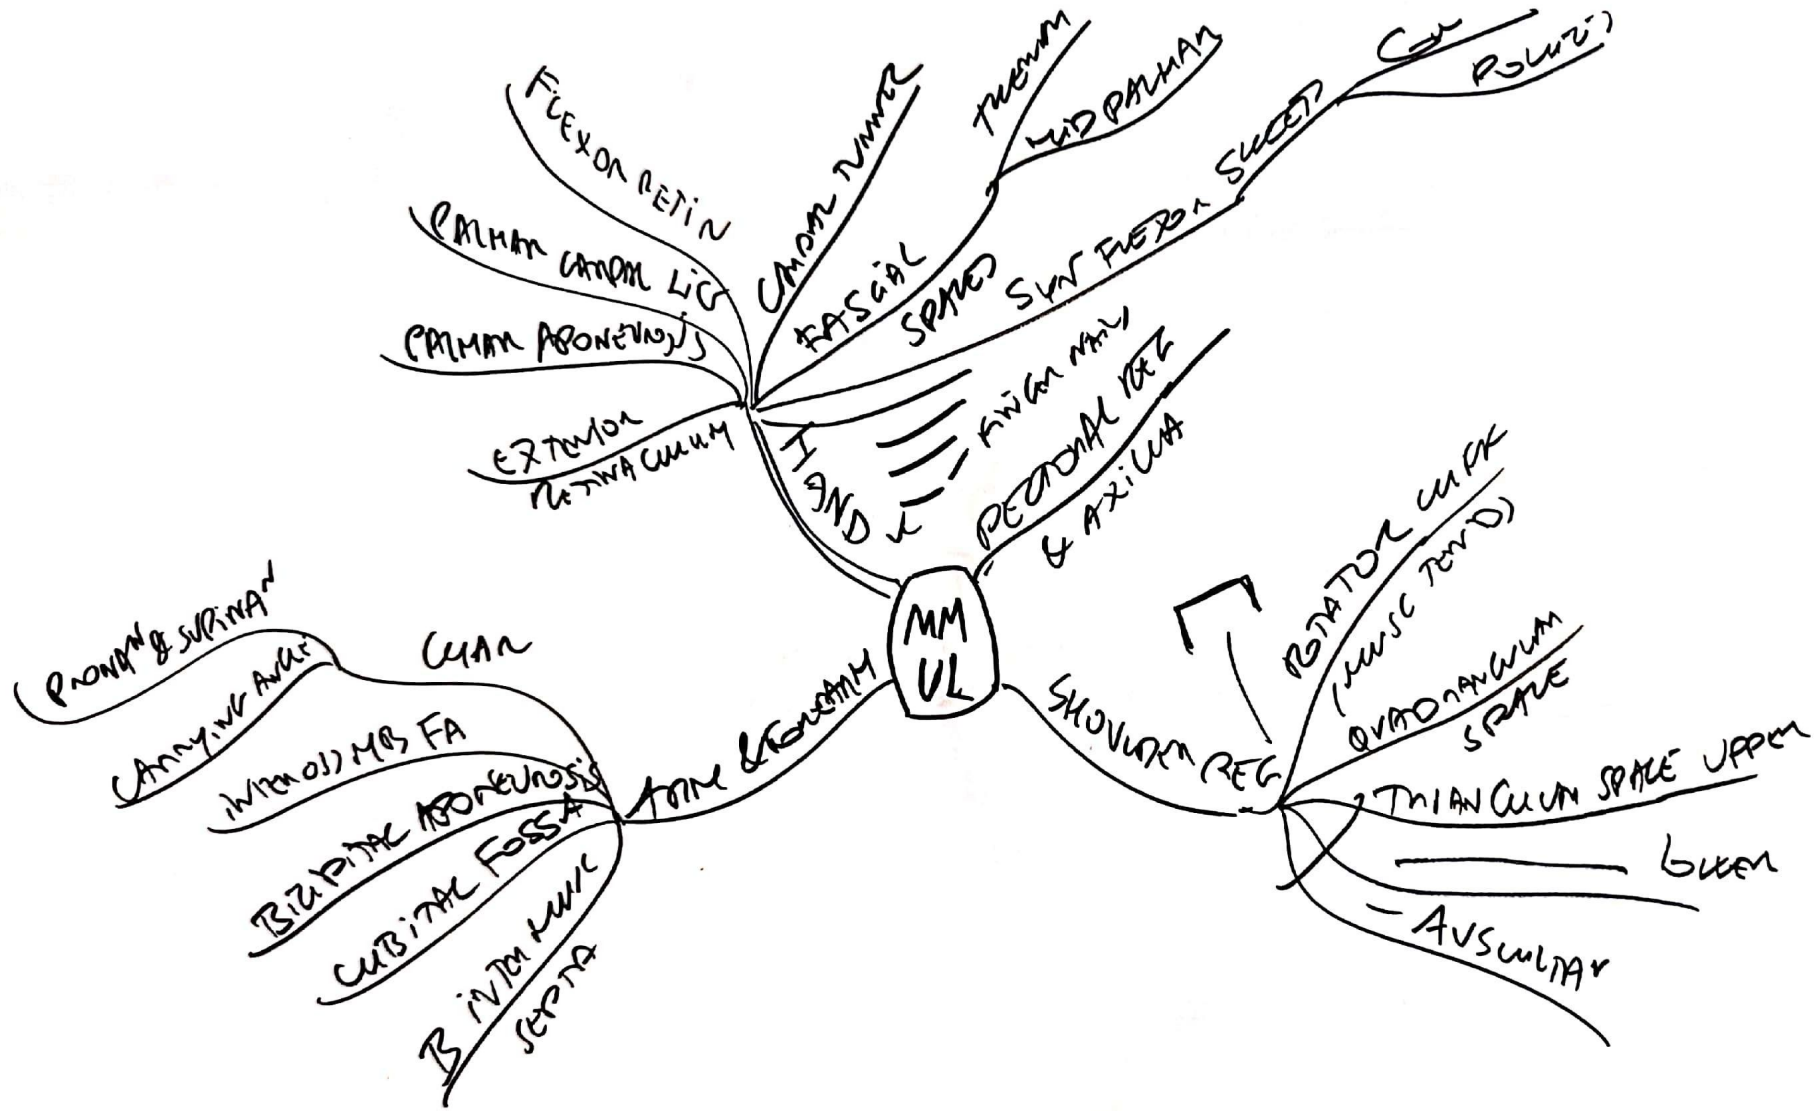 MM
UL
FLEXOR RETIN
PALMAR CARPAL LIG
PALMAR APONEUROSIS
EXTENSOR
RETINACULUM
CARPAL TUNNEL
FASCIAL
SPACES
THENAR
MIDPALMAR
SYN FLEXOR SHEETS
HAND
FINGER NAILS
PECTORAL REG
& AXILLA
SHOULDER REG
ROTATOR CUFF
(MUSC TEND)
QUADRANGULAR
SPACE
TRIANGULAR SPACE UPPER
LOWER
AUSCULTAR
ARM & FOREARM
PRONAN & SUPINAN
CARRYING ANGLE
INTEROSS MB FA
BICIPITAL APONEUROSIS
CUBITAL FOSSA
B INTER MUSC
SEPTA